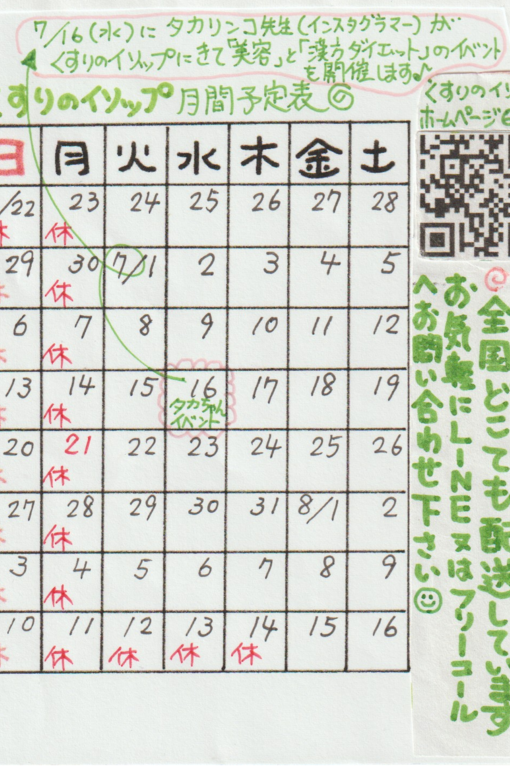 7/16(水)に タカリンコ先生(インスタグラマー)が
くすりのイソップにきて「美容」と「漢方ダイエット」のイベント
を開催します♪
くすりのイソップ 月間予定表
日 月 火 水 木 金 土
/22 23 24 25 26 27 28
休 休
29 30 7/1 2 3 4 5
休
6 7 8 9 10 11 12
休
13 14 15 16 17 18 19
休 タカちゃん
イベント
20 21 22 23 24 25 26
休
27 28 29 30 31 8/1 2
休
3 4 5 6 7 8 9
休
10 11 12 13 14 15 16
休 休 休 休
くすりのイソ
ホームページ
全国どこでも配送しています
お気軽にLINE又はフリーコール
へお問い合わせ下さい